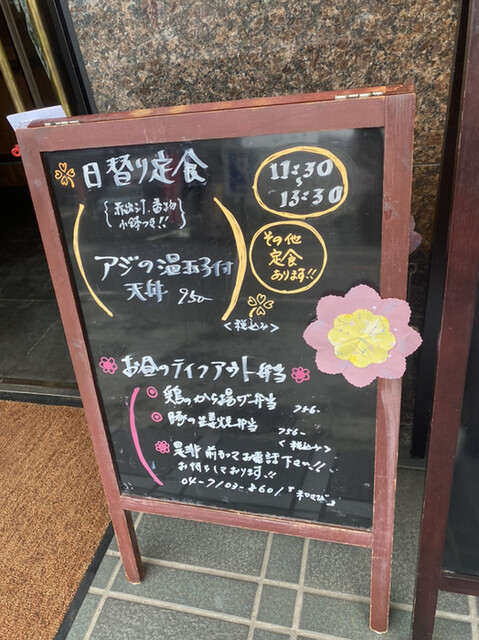 日替り定食
11:30
〜
13:30
{赤出汁、香物
小鉢つき!!}
その他
定食
あります!!
アジの温玉子付
天丼 950
<税込み>
お昼のテイクアウト弁当
鶏のから揚げ弁当 756-
豚の生姜焼弁当 756-
<税込み>
是非前もってお電話下さい!!
お待ちしております!!
04-7103-8601